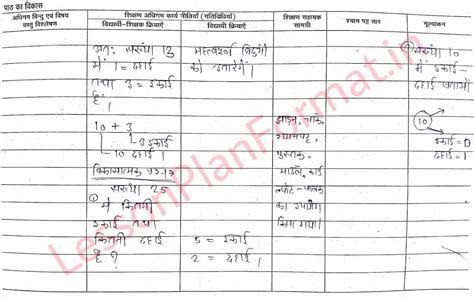 पाठ का विकास
अधिगम बिन्दु एवं विषय वस्तु विश्लेषण
शिक्षण अधिगम कार्य नीतियाँ (गतिविधियाँ)
विद्यार्थी-शिक्षक क्रियाएँ
विद्यार्थी क्रियाएँ
शिक्षण सहायक सामग्री
श्याम पट्ट सार
मूल्यांकन
अतः संख्या 13
में 1 = दहाई
तथा 3 = इकाई
है।
10 + 3
3 इकाई
10 दहाई
विकासात्मक प्रश्न
संख्या 25
में कितनी
इकाई तथा
कितनी दहाई
है ?
महत्वपूर्ण बिन्दुओं
को उतारेंगे।
5 = इकाई
2 = दहाई।
झाड़न, चाक
श्यामपट्ट,
पुस्तक,
मॉडल, कार्ड
लपेट-फलक
का उपयोग
किया गया।
संख्या 10
में इकाई -
दहाई बताओ
10
इकाई = 0
दहाई = 1
LessonPlanFormat.in